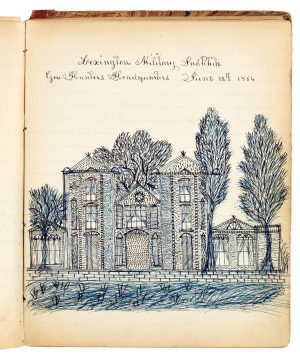 Lexington Military Institute
Gen Hunters Headquarters June 12th 1864